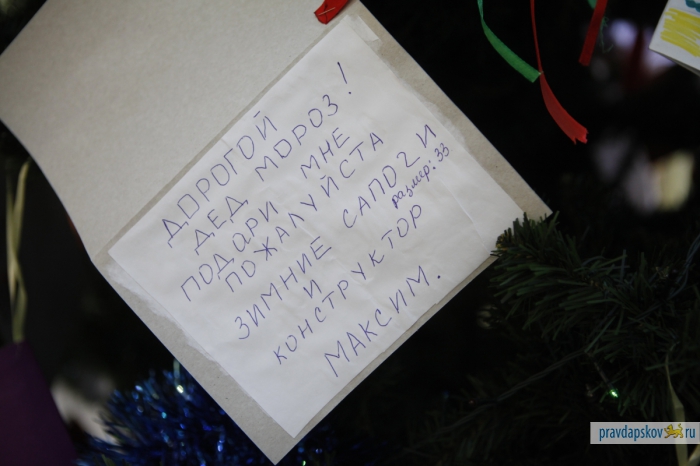 ДОРОГОЙ
ДЕД МОРОЗ!
ПОДАРИ МНЕ
ПОЖАЛУЙСТА
ЗИМНИЕ САПОГИ
размер: 33
И
КОНСТРУКТОР
МАКСИМ.
pravdapskov.ru